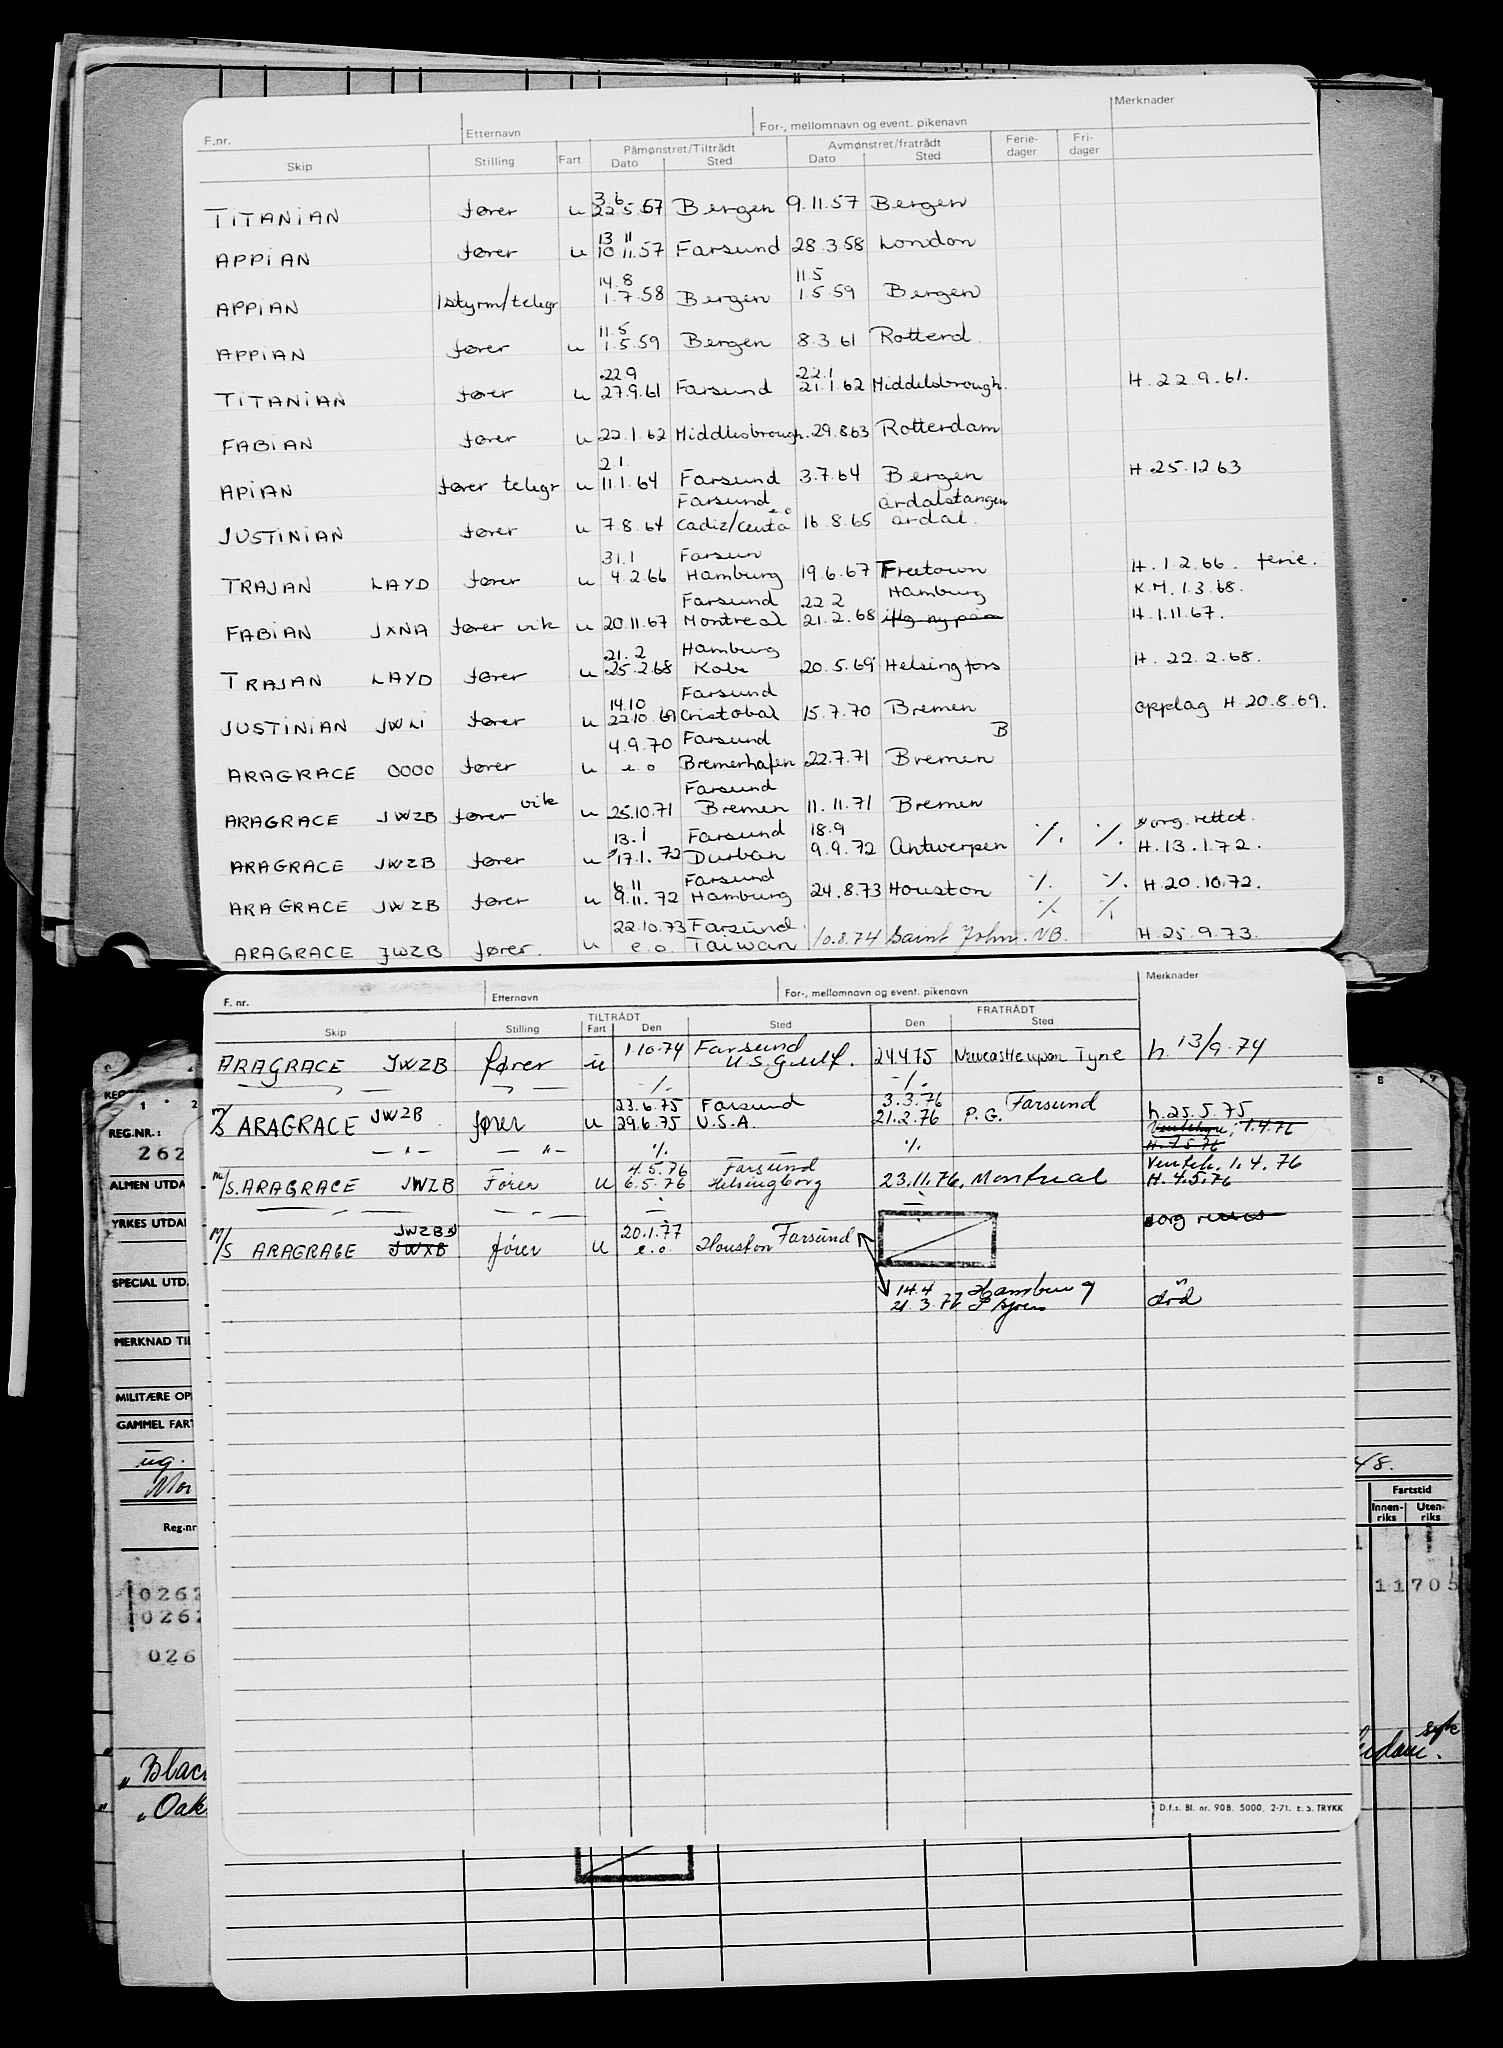 F.nr. Etternavn For-, mellomnavn og event. pikenavn Merknader
Skip Stilling Fart Påmønstret/Tiltrådt Dato Sted Avmønstret/fratrådt Dato Sted Ferie-dager Fri-dager
3.6
TITANIAN fører u 22.5.57 Bergen 9.11.57 Bergen
13 11
APPIAN fører u 10 11.57 Farsund 28.3.58 London
14.8 11.5
APPIAN 1styrm/telegr 1.7.58 Bergen 1.5.59 Bergen
11.5
APPIAN fører u 1.5.59 Bergen 8.3.61 Rotterd.
22 9 22.1
TITANIAN fører u 27.9.61 Farsund 21.1.62 Middelsbrough. H. 22.9.61.
FABIAN fører u 22.1.62 Middlesbrough. 29.8.63 Rotterdam
2.1
APIAN fører telegr u 11.1.64 Farsund 3.7.64 Bergen H. 25.12 63
Farsund e.o Årdalstangen
JUSTINIAN fører u 7.8.64 Cadiz/Ceuta 16.8.65 Årdal.
31.1 Farsun
TRAJAN LAYD fører u 4.2.66 Hamburg 19.6.67 Freetown H. 1.2.66. ferie.
Farsund 22.2 Hamburg K.M. 1.3.68.
FABIAN JXNA fører vik u 20.11.67 Montreal 21.2.68 H. 1.11.67.
21.2 Hamburg
TRAJAN LAYD fører u 25.2.68 Kobe 20.5.69 Helsingfors H. 22.2.68.
14.10 Farsund
JUSTINIAN JWLI fører u 22.10.69 Cristobal 15.7.70 Bremen opplag H. 20.8.69.
4.9.70 Farsund B
ARAGRACE 0000 fører u e.o Bremerhafen 22.7.71 Bremen
Farsund
ARAGRACE JWZB fører vik u 25.10.71 Bremen 11.11.71 Bremen
13.1 Farsund 18.9 sorg. rettet.
ARAGRACE JWZB fører u 17.1.72 Durban 9.9.72 Antwerpen ./. ./. H. 13.1.72.
6.11 Farsund
ARAGRACE JWZB fører u 9.11.72 Hamburg 24.8.73 Houston ./. ./. H. 20.10.72.
22.10.73 Farsund ./. ./.
ARAGRACE JWZB fører. u e.o. Taiwan 10.8.74 Saint John. NB. H. 25.9.73.
F. nr. Etternavn For-, mellomnavn og event. pikenavn Merknader
Skip Stilling Fart TILTRÅDT Den Sted FRATRÅDT Den Sted
1.10.74 Farsund
ARAGRACE JWZB fører u U.S. Gulf. 24.4.75 Newcastle upon Tyne h. 13/9.74
./. ./.
23.6.75 Farsund 3.3.76 Farsund
M/S ARAGRACE JWZB fører u 29.6.75 U.S.A. 21.2.76 P.G. h. 25.5.75
1.4.76
— " — — " — ./. ./. H. 7.5.76
4.5.76 Farsund Venteh. 1.4.76
M/S. ARAGRACE JWZB Fører u 6.5.76 Helsingborg 23.11.76. Montreal H. 4.5.76
sorg rettet
JWZB 20.1.77
M/S ARAGRAGE JWXB fører u e.o. Houston Farsund
14.4 Hamburg
21.3.77 død
D.f.s. Bl. nr. 90B. 5000. 2-71. E. S. TRYKK
REG.NR.:
262
ALMEN UTDA
YRKES UTDA
SPECIAL UTD
MERKNAD TIL
MILITÆRE OP
GAMMEL FART
ug.
Mor
48.
Reg.nr
Fartstid
Innen-riks Uten-riks
0262
0262
026
11705
„Blac
„Oak
syk